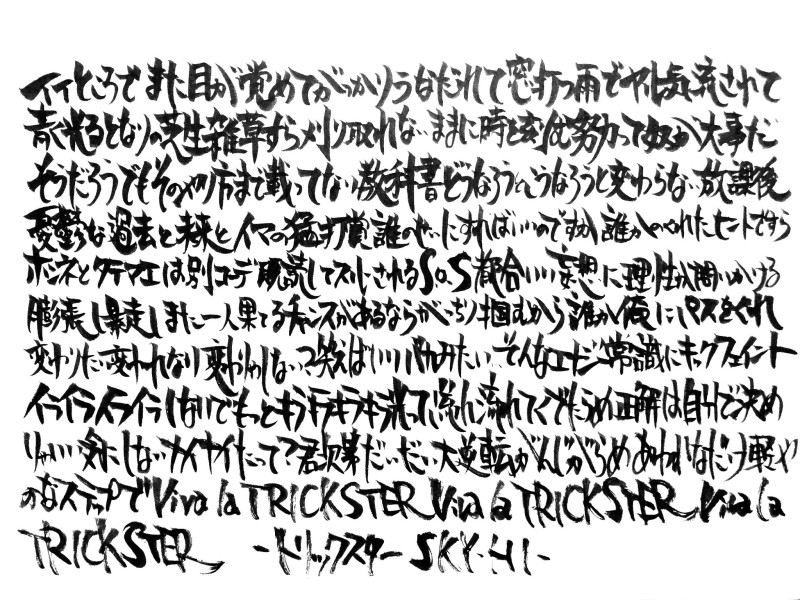 イイところでまた目が覚めてがっかりうなだれて窓打つ雨でヤル気流されて
青く光るとなりの芝生雑草すら刈り取れないままに時は玄人努力って奴が大事だ
そうだろうでもそのやり方まで載ってない教科書どうなろうとこうなろうと変わらない放課後
憂鬱な過去と未来とイマの猛打賞誰のせいにすればいいのですか誰かがくれたヒントですら
ホンネとタテマエは別コーデ 既読してスルーされるS.O.S都合いい妄想に理性が問いかける
膨張し暴走しまた一人果てるチャンスがあるならがっちり掴むから誰か俺にパスをくれ
変わりたい変われない変わりゃしないって笑えばいいバカみたい そんなエナジー常識にキックフェイント
イライライライラしないでもっとキラキラキラキラ光って流れ流れてくでたらめ正解は自分で決め
りゃいい気にしないナイナイだって?君次第だいだい大逆転がんじがらめあわれなだけ軽や
かなステップでViva la TRICKSTER Viva la TRICKSTER Viva la
TRICKSTER -トリックスター SKY-HI-